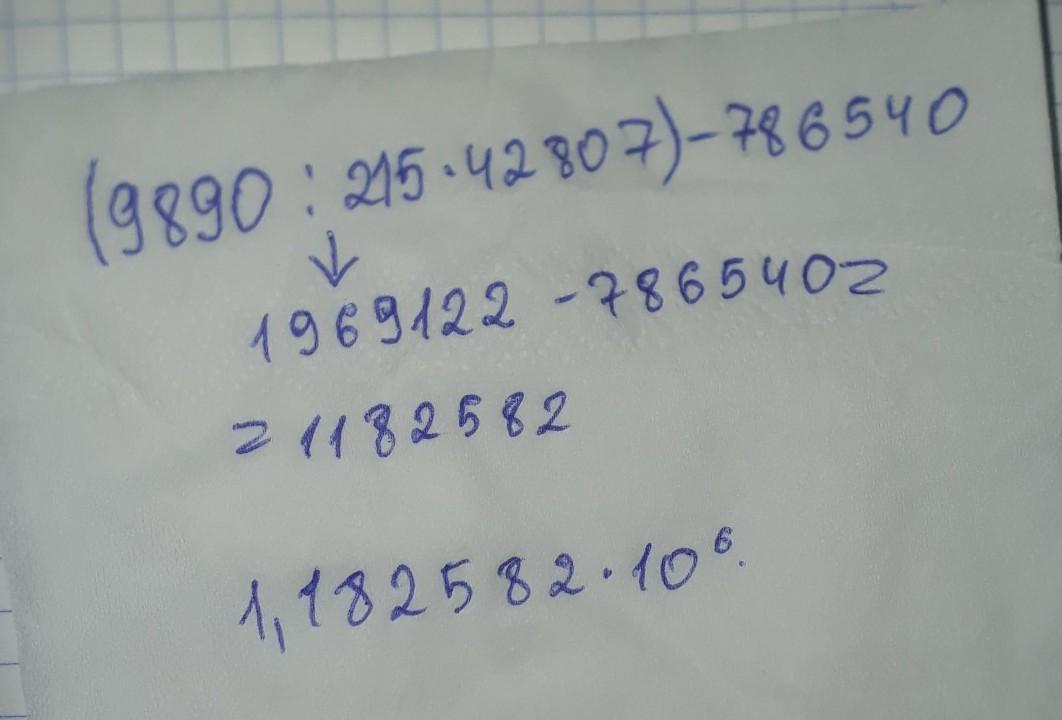 (9890 : 215 · 42807) - 786540
↓
1969122 - 786540 =
= 1182582
1,182582 · 10⁶.